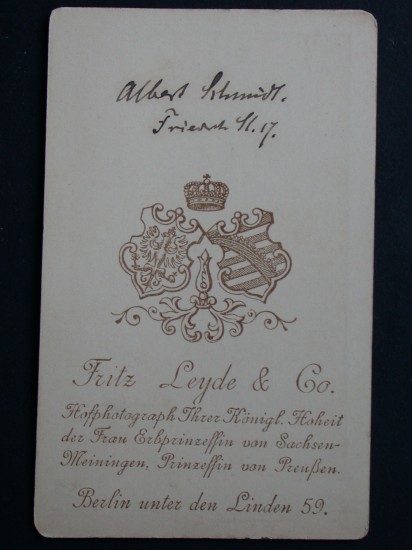 Albert Schmidt.
Friedrch St. 17.
Fritz Leyde & Co.
Hofphotograph Ihrer Königl. Hoheit
der Frau Erbprinzessin von Sachsen-
Meiningen, Prinzessin von Preußen.
Berlin unter den Linden 59.